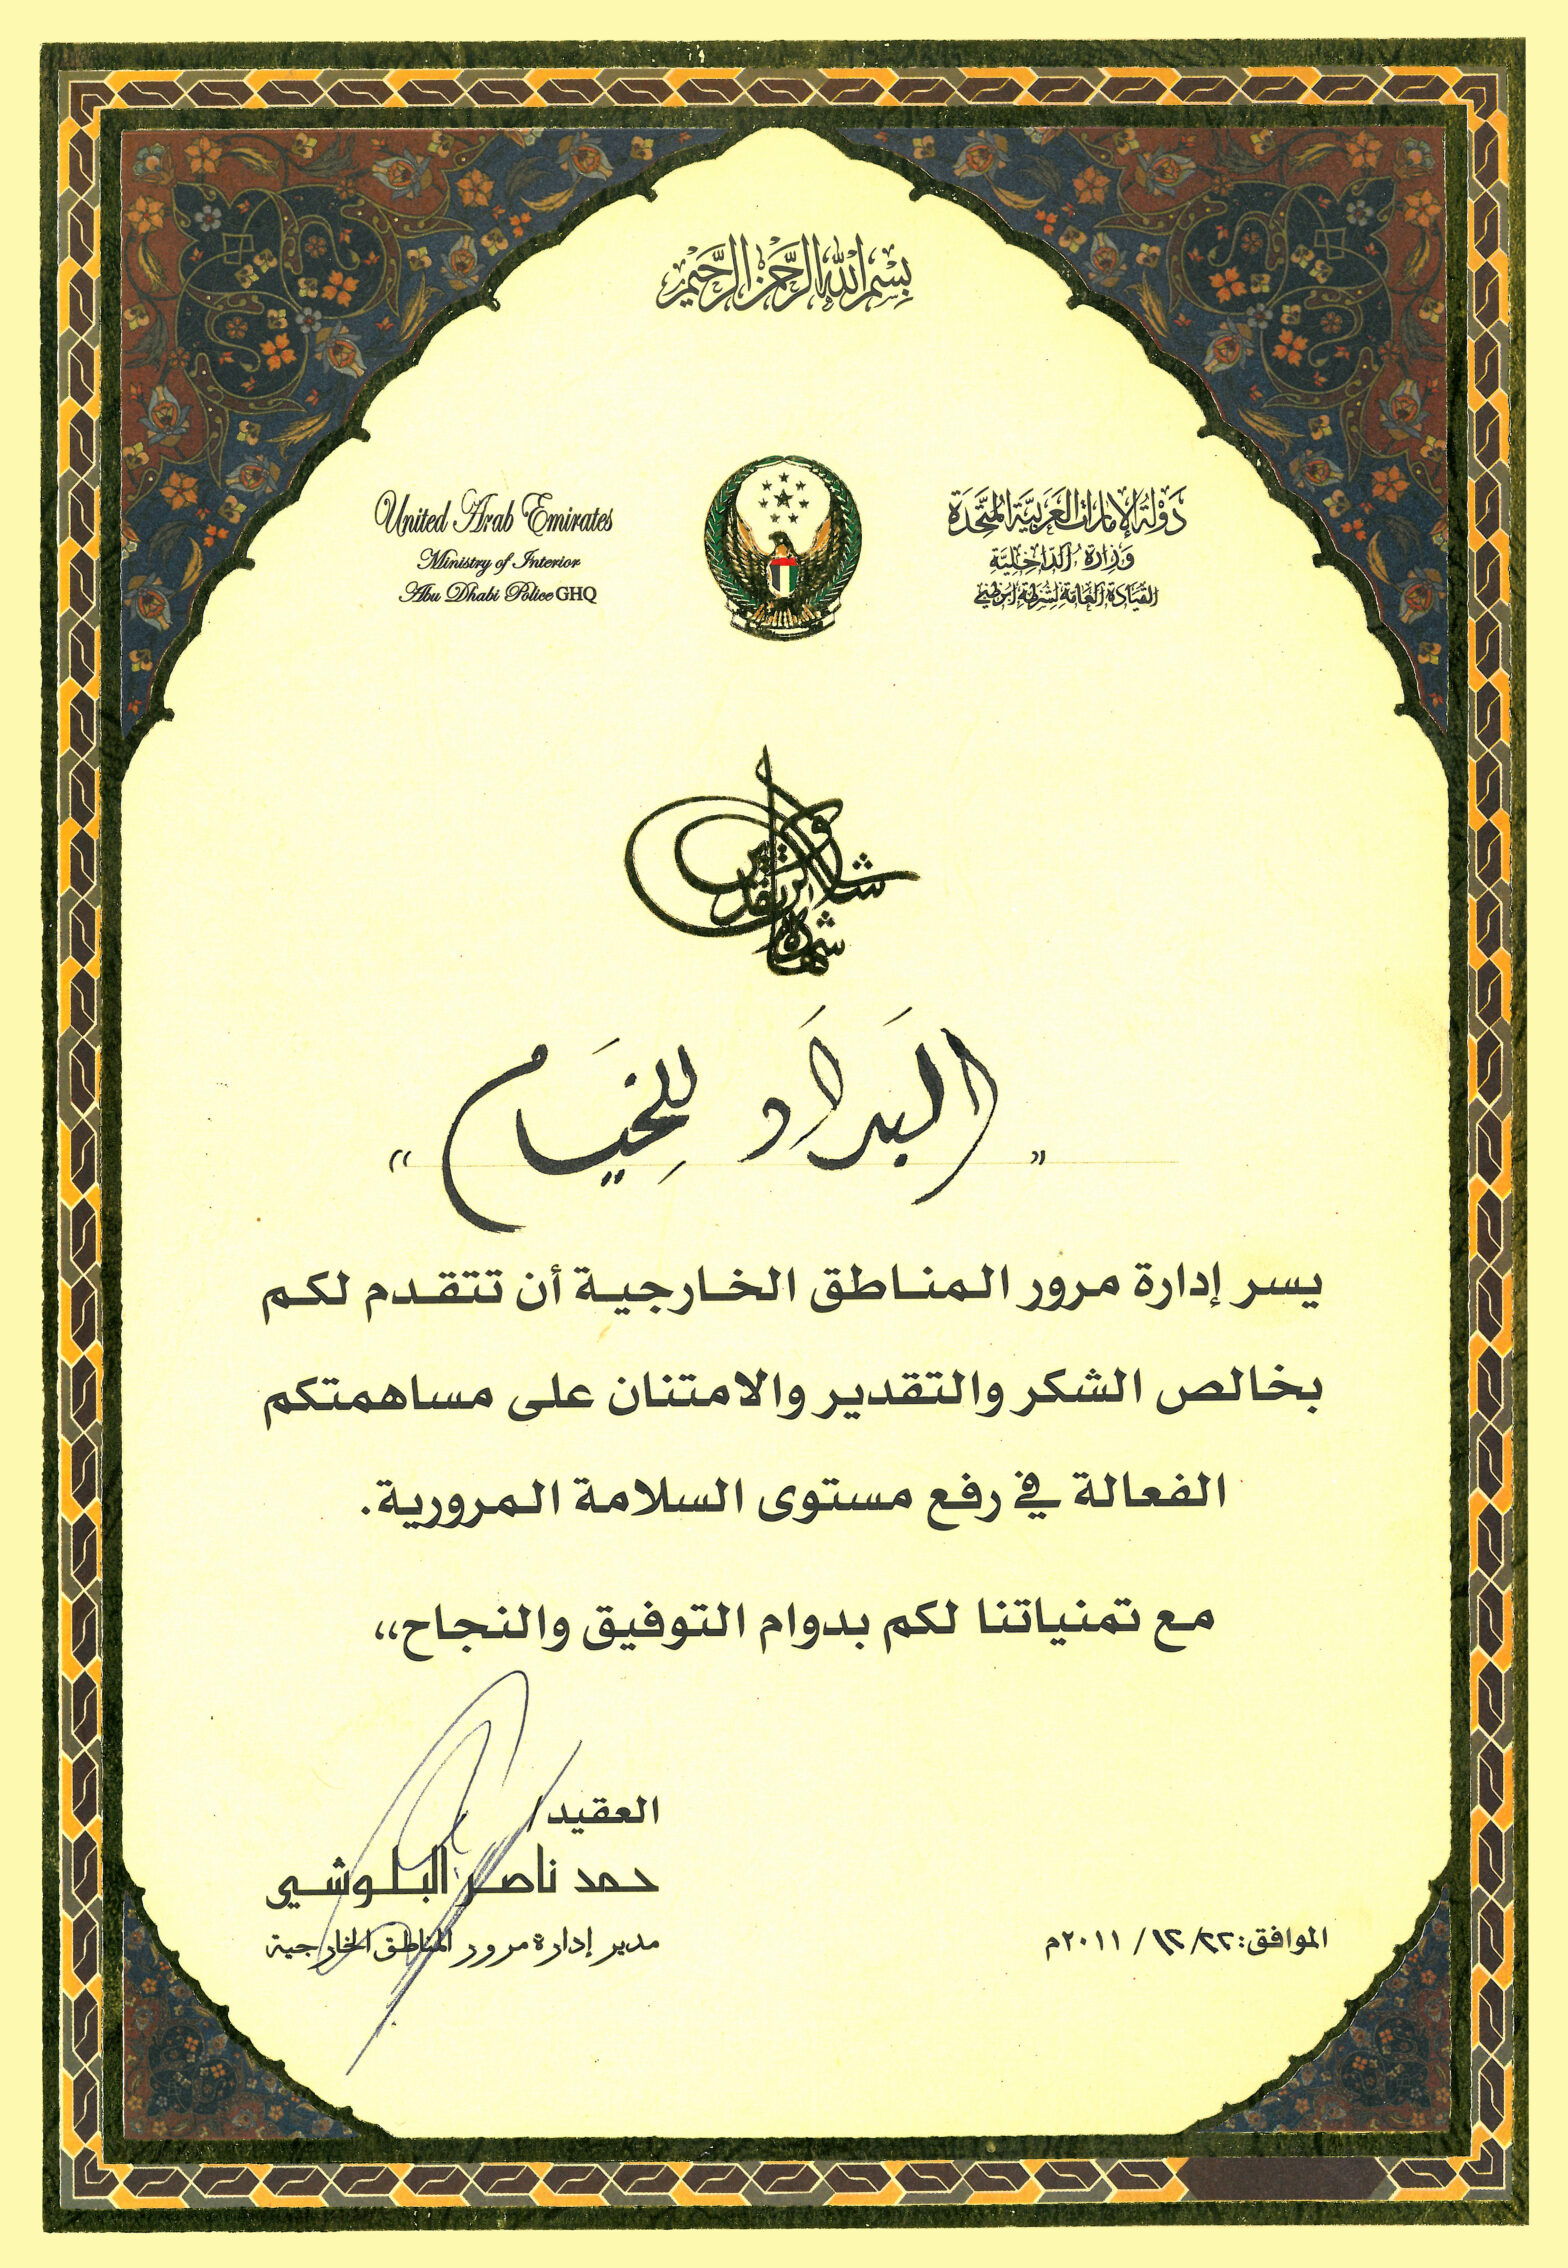 بِسْمِ اللهِ الرَّحْمَنِ الرَّحِيمِ
دَوْلَةُ الإِمَارَاتِ العَرَبِيَّةِ المُتَّحِدَة
وَزَارَةُ الدَّاخِلِيَّة
القِيَادَة العَامَّة لِشُرْطَة أَبُوظَبِي
United Arab Emirates
Ministry of Interior
Abu Dhabi Police GHQ
شهادة شكر وتقدير
" البَدَاد للخِيَام "
يسر إدارة مرور المناطق الخارجية أن تتقدم لكم
بخالص الشكر والتقدير والامتنان على مساهمتكم
الفعالة في رفع مستوى السلامة المرورية.
مع تمنياتنا لكم بدوام التوفيق والنجاح،،
العقيد/
حمد ناصر البلوشي
مدير إدارة مرور المناطق الخارجية
الموافق: ٢٢/ ١٢/ ٢٠١١م